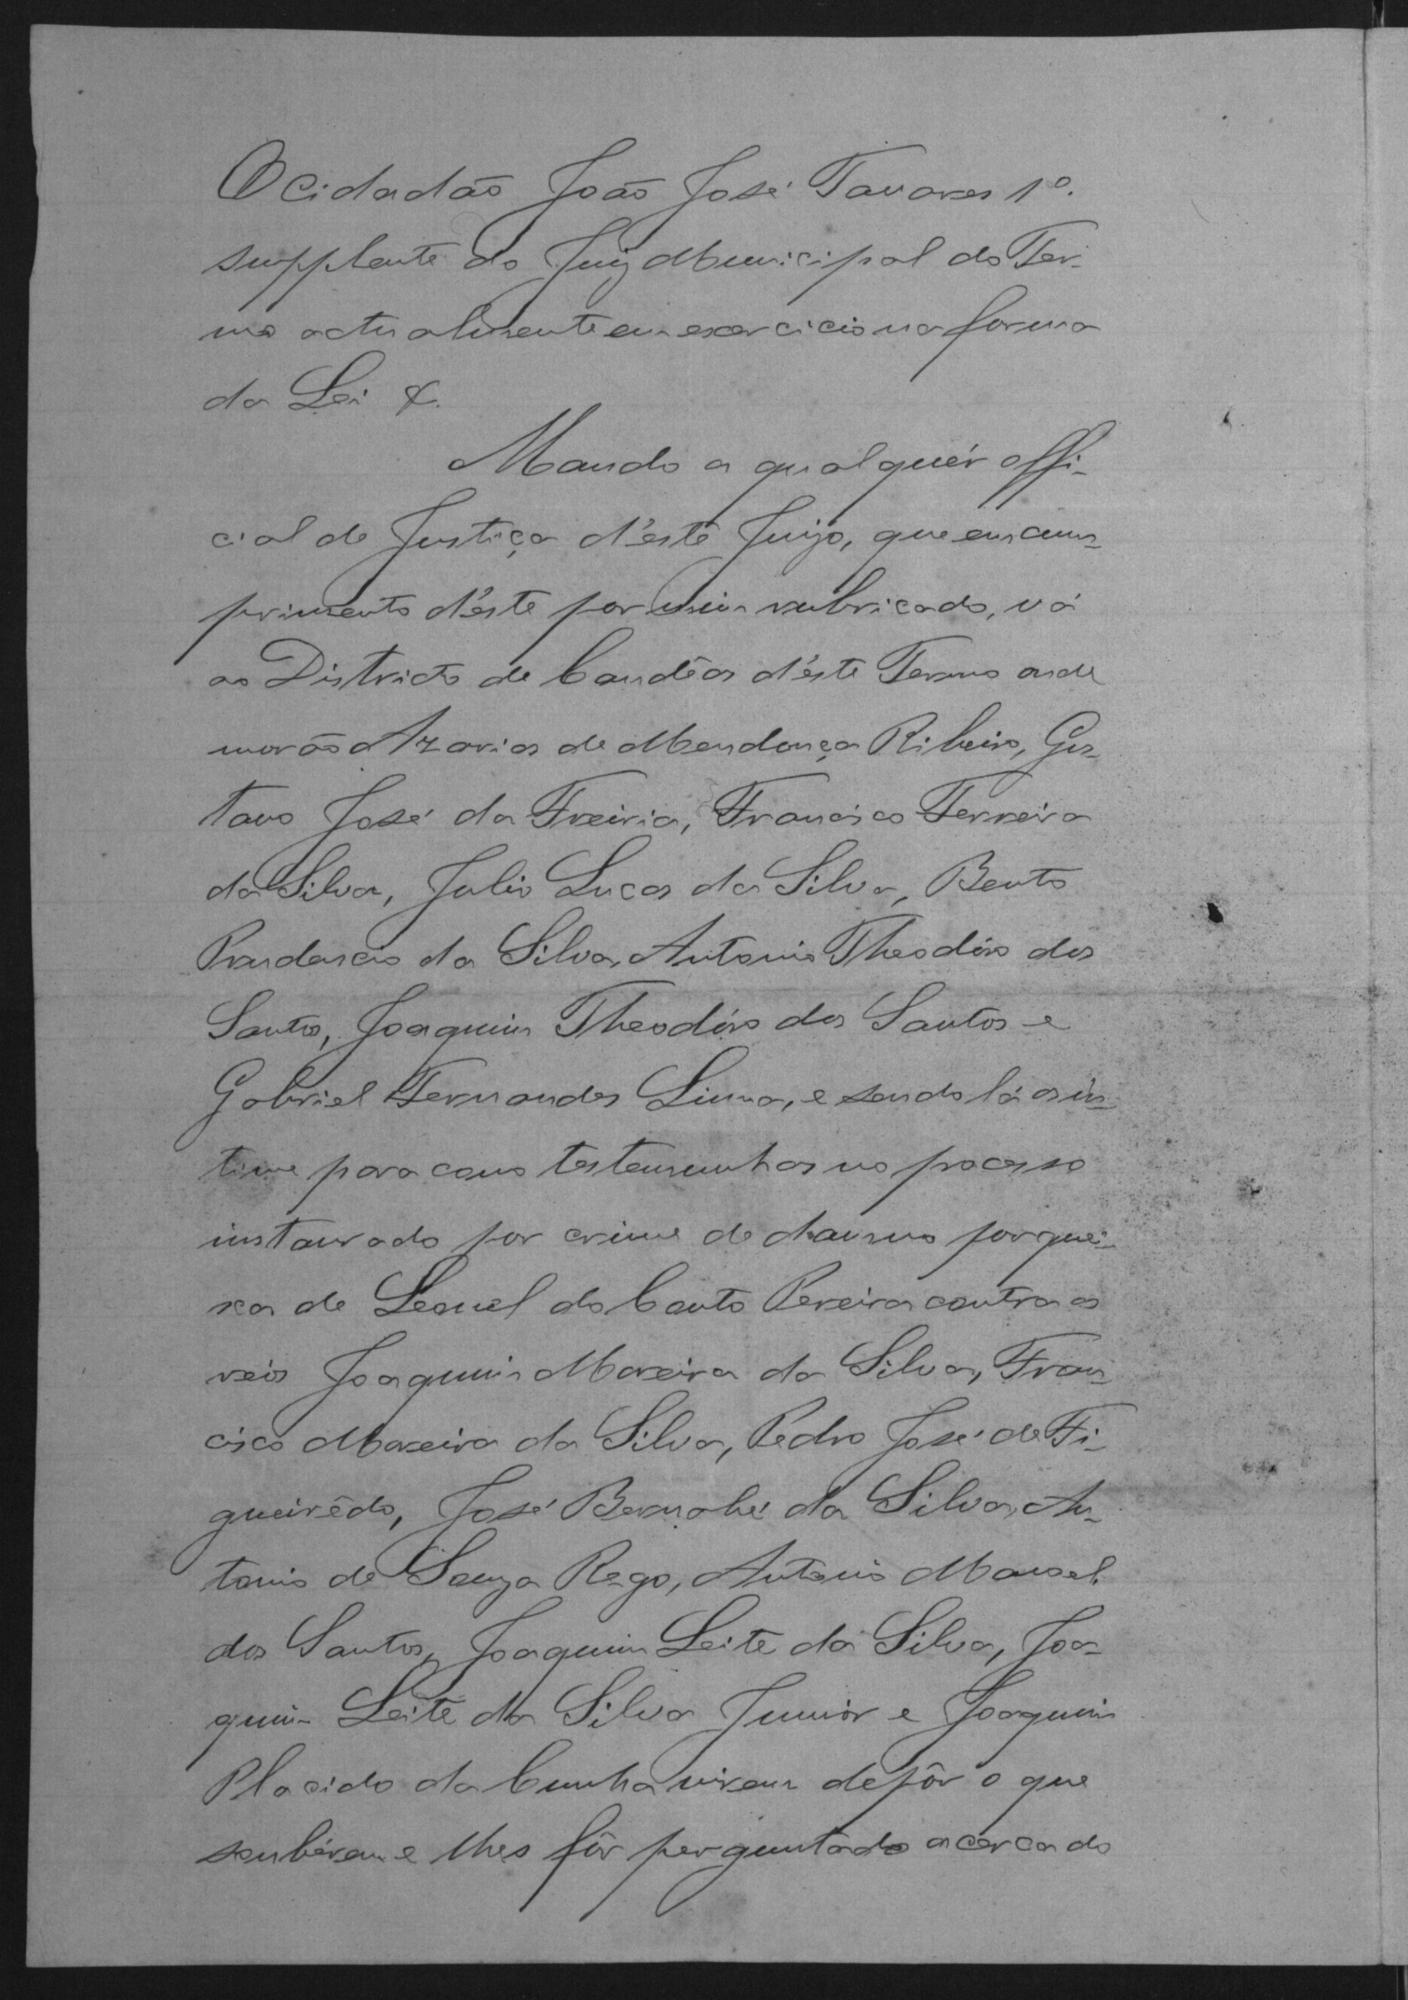 O cidadão João José Tavares 1º.
supplente do Juiz Municipal do Ter-
mo actualmente em exercicio na forma
da Lei &.
Mando a qualquér offi-
cial de Justiça d'éste Juizo, que em cum-
primento d'éste por mim rubricado, vá
ao Districto de Candêas d'éste Termo onde
morão Azarias de Mendonça Ribeiro, Gus-
tavo José da Freiria, Francisco Ferreira
da Silva, Julio Lucas da Silva, Bento
Prudencio da Silva, Antonio Theodóro dos
Santos, Joaquim Theodóro dos Santos e
Gabriel Fernandes Lima, e sendo lá os in-
time para como testemunhas no processo
instaurado por crime de damno por quei-
xa de Leonel do Couto Pereira contra os
reis Joaquim Moreira da Silva, Fran-
cisco Moreira da Silva, Pedro José de Fi-
gueirêdo, José Bernabé da Silva, An-
tonio de Souza Rego, Antonio Manoel
dos Santos, Joaquim Leite da Silva, Joa-
quim Leite da Silva Junior e Joaquim
Placido da Cunha virem depôr o que
soubérem e lhes fôr perguntado acerca do